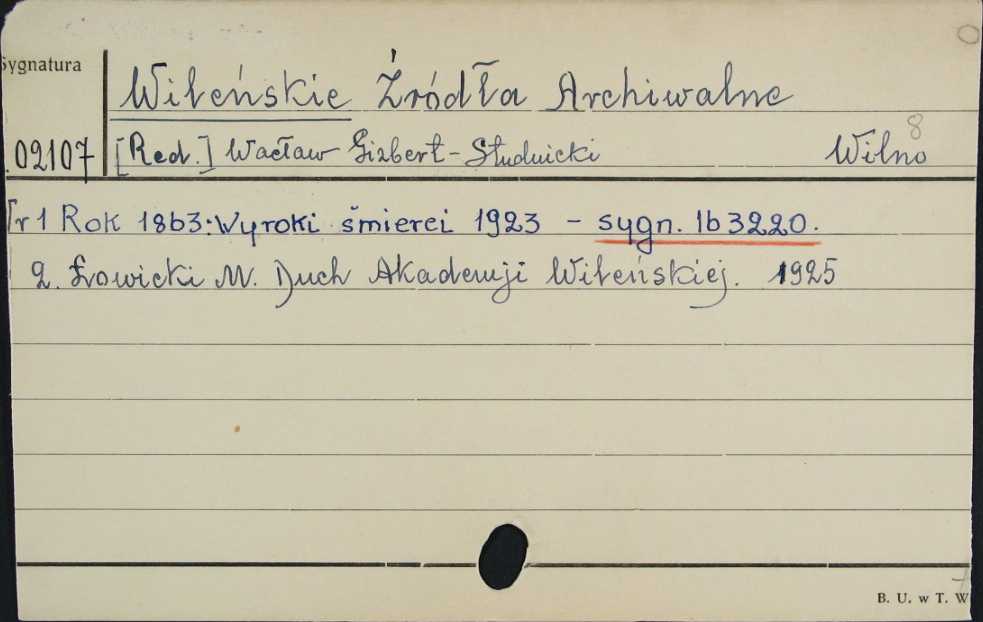 Sygnatura
Wileńskie Źródła Archiwalne
8
02107 [Red.] Wacław Gizbert-Studnicki Wilno
Tr 1 Rok 1863: Wyroki śmierci 1923 - sygn. Ib 3220.
2. Łowicki M. Duch Akademji Wileńskiej. 1925
B. U. w T. W